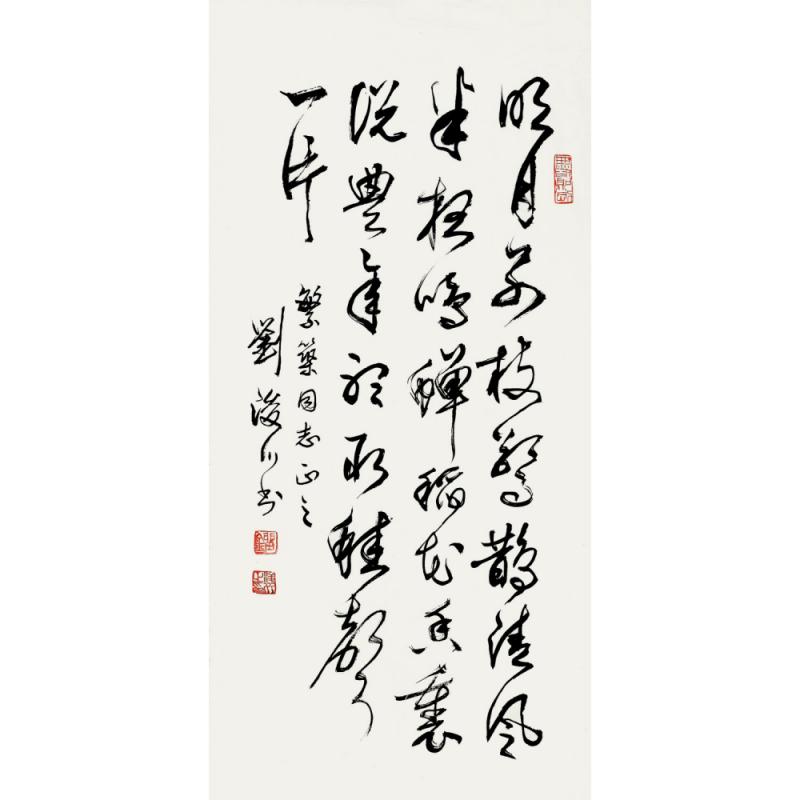 明月别枝驚鵲清風
半夜鳴蟬稻花香裏
説豐年聽取蛙聲
一片
繁築同志正之
劉浚川书